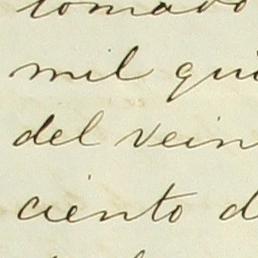 tomado
mil qui
del vein
ciento d